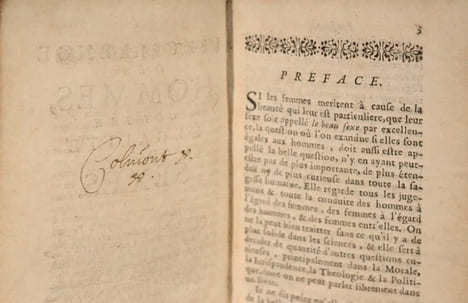 Colmont
3
PREFACE.
SI les femmes meritent à cause de la
beauté qui leur est particuliere, que leur
sexe soit appellé le beau sexe par excellen-
ce, la question où l'on examine si elles sont
égales aux hommes, doit aussi estre ap-
pellé la belle question, n'y en ayant peut-
estre pas de plus importante, de plus éten-
duë ny de plus curieuse dans toute la sa-
gesse humaine. Elle regarde tous les juge-
mens & toute la conduite des hommes à
l'égard des femmes, des femmes à l'égard
des hommes, & des femmes entr'elles. On
ne la peut bien traitter sans ce qu'il y a de
plus solide dans les sciences, & elle sert à
decider de quantité d'autres questions cu-
rieuses, principalement dans la Morale,
la Jurisprudence, la Theologie & la Politi-
que, dont on ne peut parler librement dans